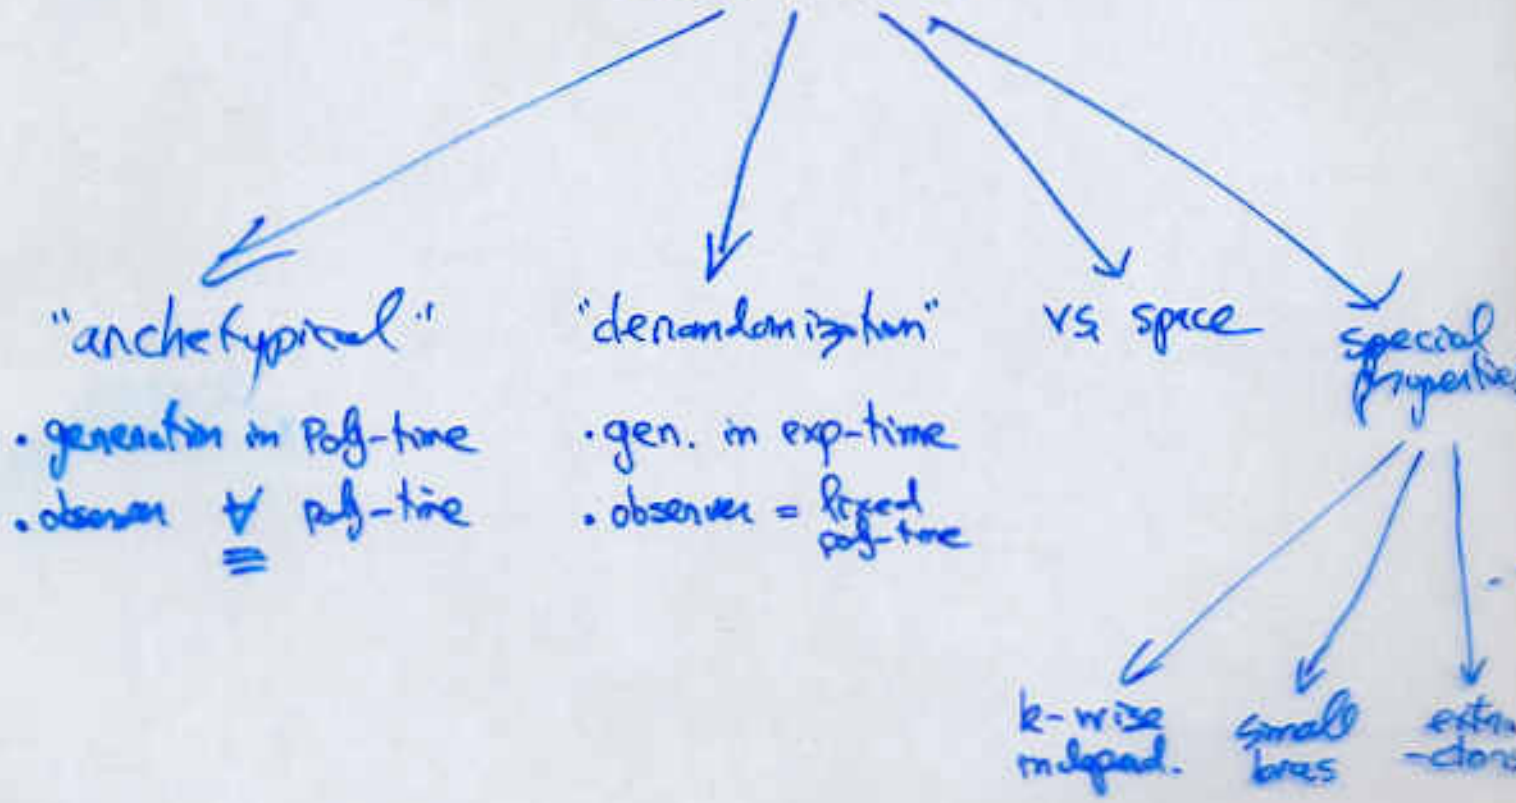 "archetypical"
· generation in Poly-time
· observer ∀ poly-time
"derandomization"
· gen. in exp-time
· observer = fixed
poly-time
vs space
special
propertie
k-wise
independ.
small
bias
extra
-ctors